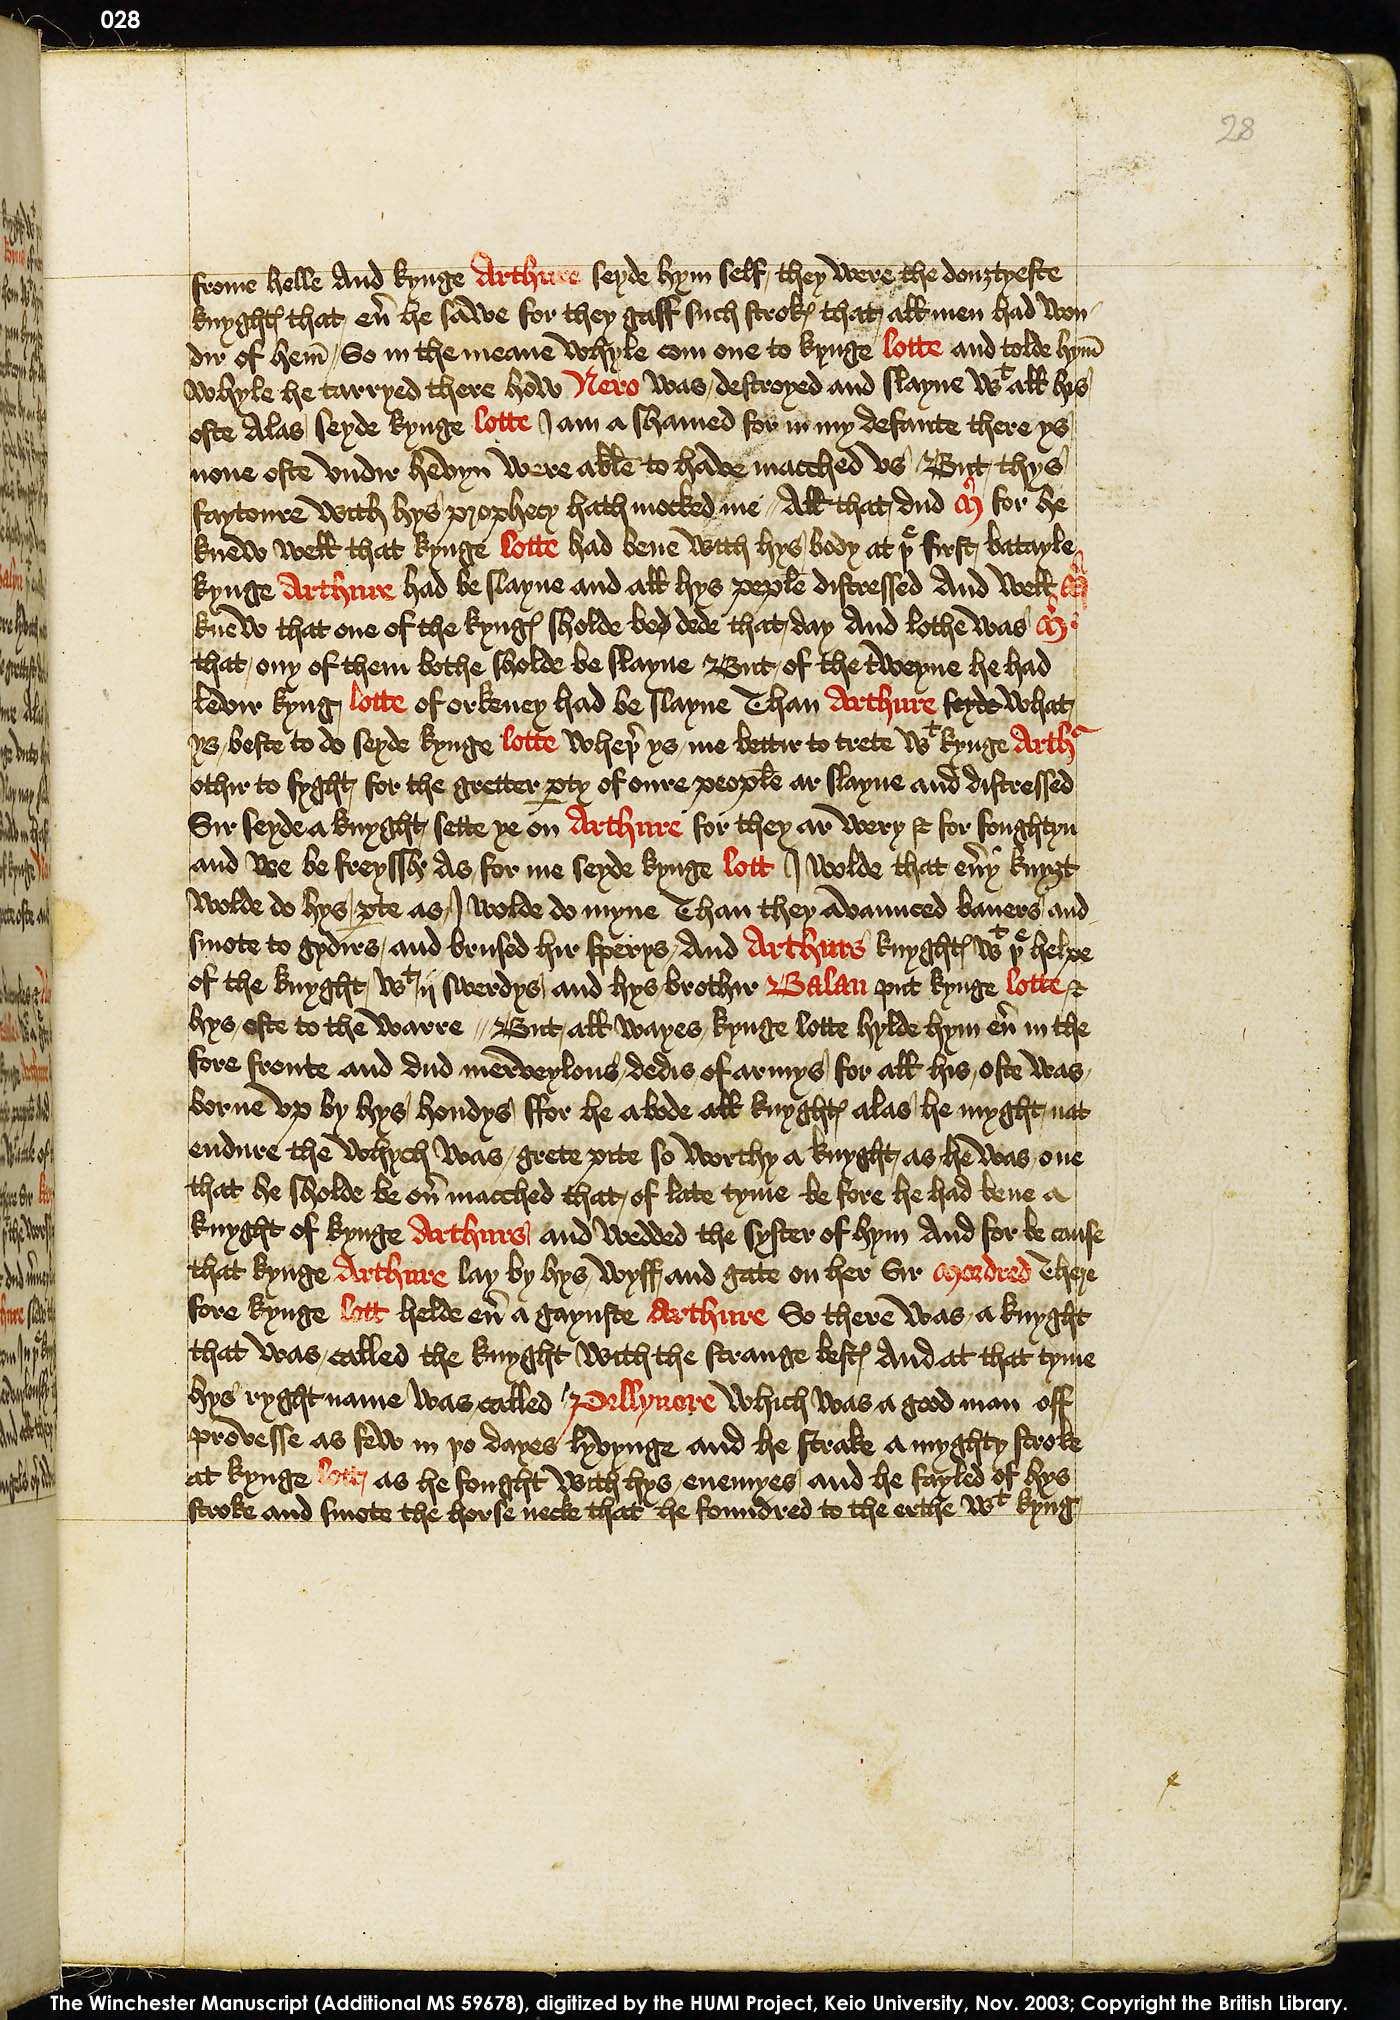 028
28
frome helle And kynge Arthure seyde hym self they were the douztyeste
knyghtes that eu̾ he sawe for they gaff such strokes that all men had won
dir of hem̄ So in the meane whyle com one to kynge lotte and tolde hym̄
whyle he tarryed there how Nero was destroyed and slayne wt all his
oste Alas seyde kynge lotte I am a shamed for in my defaute there ys
none oste vndir hevyn were able to have macched vs But thys
faytoure with hys prophecy hath mocked me // All that dud M for he
knew well that kynge lotte had bene with hys body at þe first batayle
kynge Arthure had be slayne and all hys peple distressed And well M
knew that one of the kynges sholde be dede that day And lothe was M
that ony of them bothe sholde be slayne But of the tweyne he had
levir kyng lotte of orkeney had be slayne Than Arthure seyde What
ys beste to do seyde kynge lotte wheþ̾ ys me bettir to trete wt kynge Arthr
othir to fyght for the gretter ꝑty of oure people ar slayne and distressed
Sir seyde a knyght sette ye on Arthure for they ar wery & for foughtyn
and we be freyssh As for me seyde kynge lott I wolde that eu̾y knygt
wolde do hys ꝑte as I wolde do myne Than they avaunced baners and
smote to gydirs and brused hir sperys And Arthurs knyghtes wt þe helpe
of the knyght wt ij swerdys and hys brothir Balan put kynge lotte &
hys oste to the warre // But all wayes kynge lotte hylde hym eu̾ in the
fore fronte and dud merveylous dedis of armys for all his oste was
borne vp by hys hondys ffor he abode all knyghtes alas he myght nat
endure the whych was grete pite so worthy a knyght as he was one
that he sholde be ou̾ macched that of late tyme be fore he had bene a
knyght of kynge Arthurs and wedded the syster of hym And for be cause
that kynge Arthure lay by hys wyff and gate on her Sir Mordred There
fore kynge lott helde eu̾ a gaynste Arthure So there was a knyght
that was called the knyght with the strange beste And at that tyme
hys ryght name was called Pellynore which was a good man off
provesse as few in þo dayes lyvynge and he strake a myghty stroke
at kynge lott as he fought with hys enemyes and he fayled of hys
stroke and smote the horse necke that he foundred to the erthe wt kyng
The Winchester Manuscript (Additional MS 59678), digitized by the HUMI Project, Keio University, Nov. 2003; Copyright the British Library.